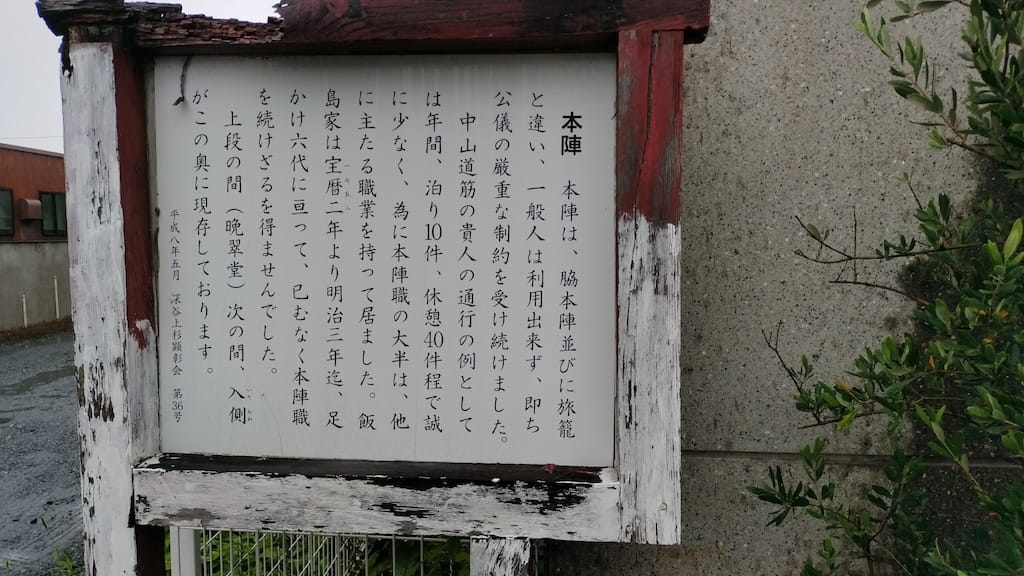 本陣　本陣は、脇本陣並びに旅籠
と違い、一般人は利用出来ず、即ち
公儀の厳重な制約を受け続けました。
中山道筋の貴人の通行の例として
は年間、泊り10件、休憩40件程で誠
に少なく、為に本陣職の大半は、他
に主たる職業を持って居ました。飯
島家は宝暦二年より明治三年迄、足
かけ六代に亘って、已むなく本陣職
を続けざるを得ませんでした。
上段の間（晩翠堂）次の間、入側
がこの奥に現存しております。
平成八年五月　深谷上杉顕彰会　第36号